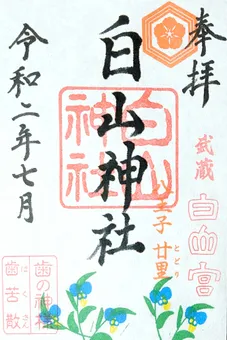 奉拝
武蔵
白山宮
八王子 廿里
とどり
白山神社
白山
神社
令和二年七月
歯の神様
はくさん
歯苦散